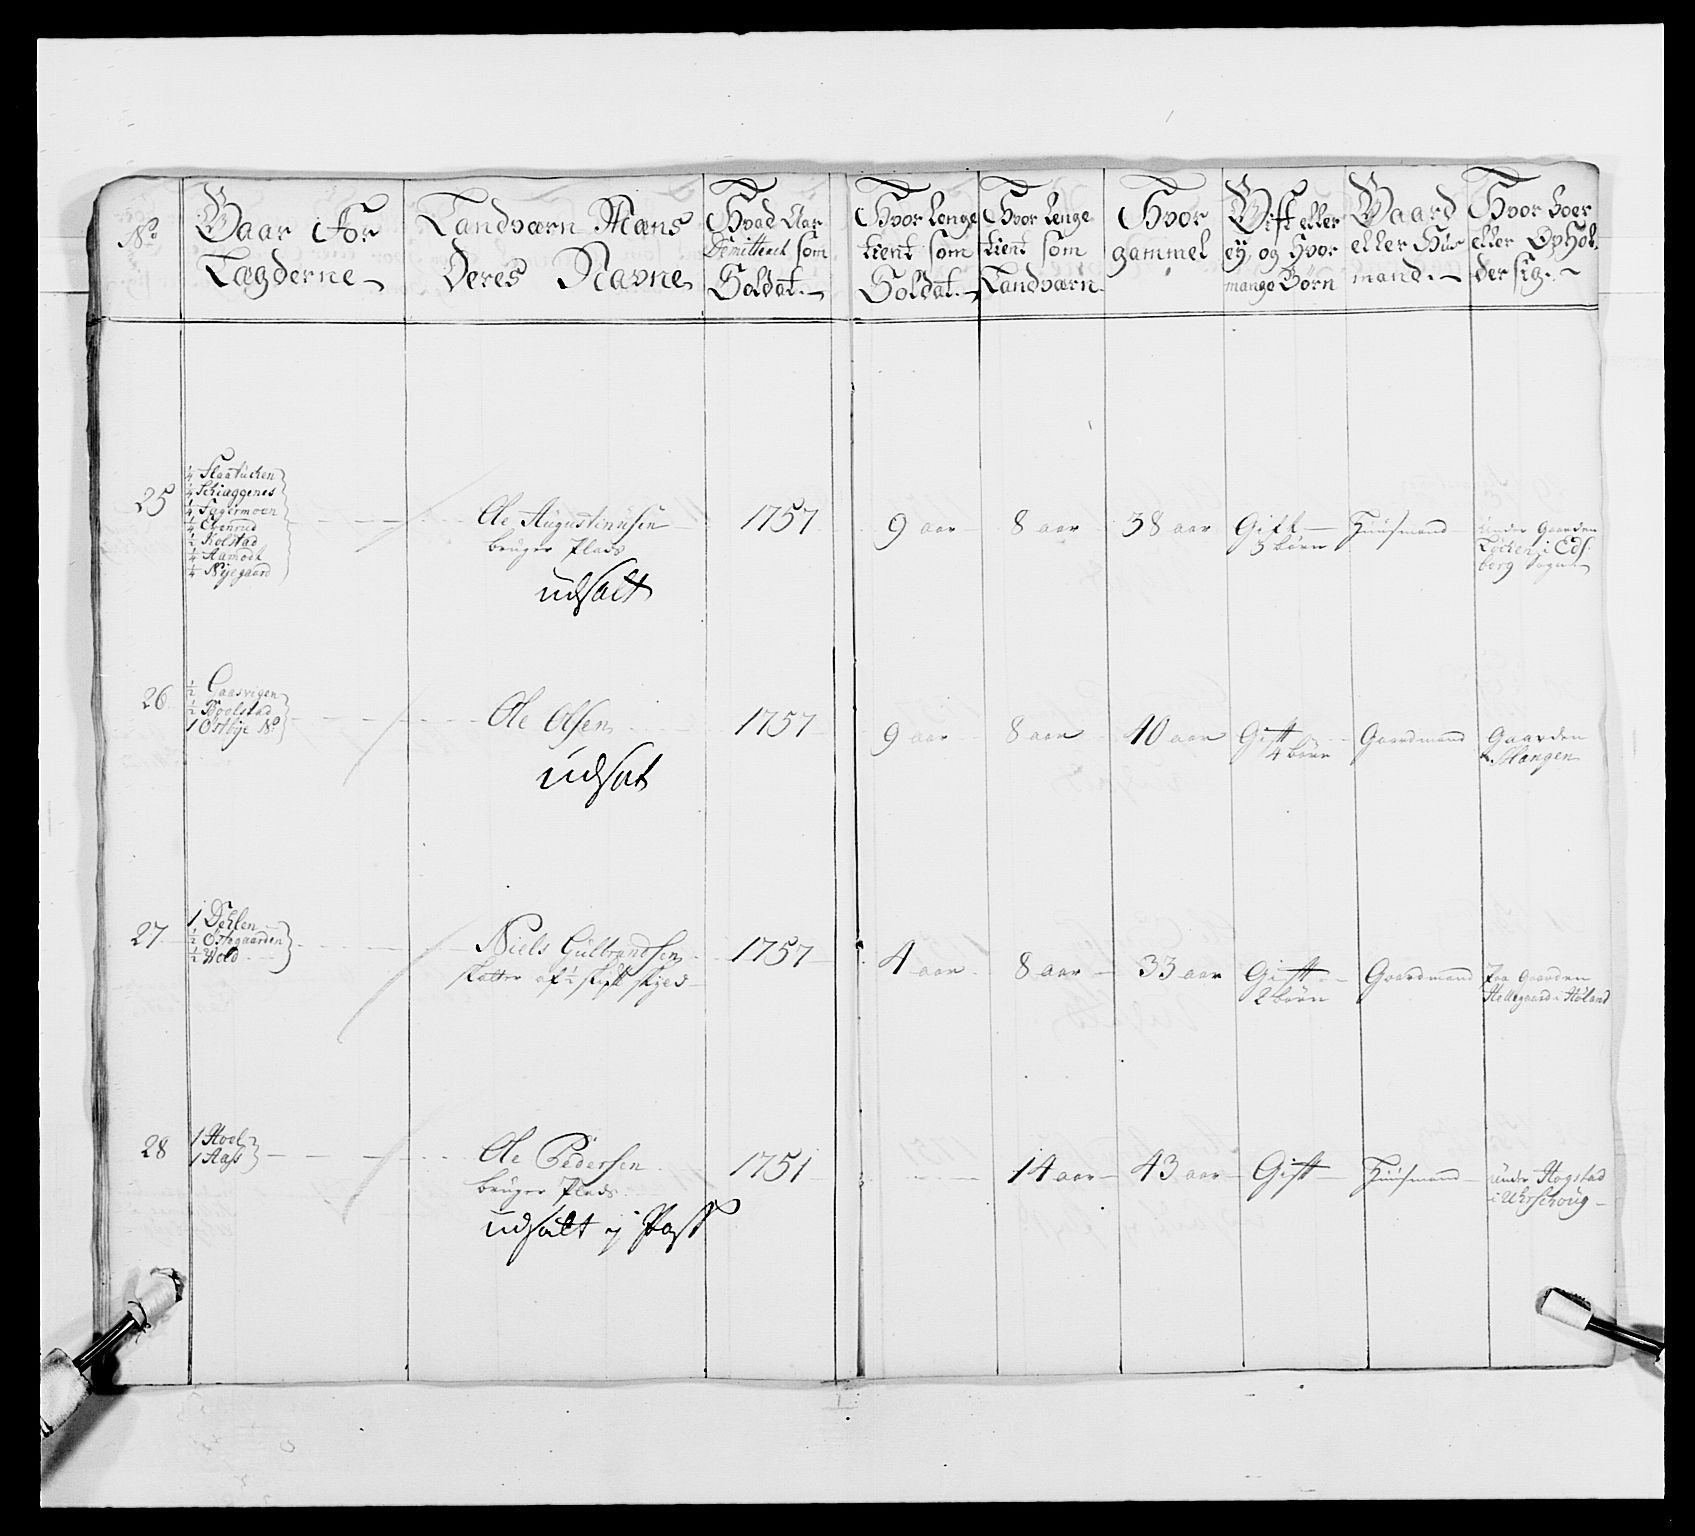 No
Gaar For
Lægderne
Landværn Mæns
Deres Navne
Hvad Aar
Demitteret som
Soldat
Hvor lenge
tient som
Soldat
Hvor lenge
tient som
Landværn
Hvor
gammel
Gift eller
ey, og hvor
mange Börn
Gaard
eller Huus
mand
Hvor boer
eller Ophol
der sig
25
1/4 Slaatuchen
1/4 Schiaggenes
1/4 Fagermoen
1/4 Egenrud
1/2 Kolstad
1/4 Aamodt
1/4 Nyegaard
Ole Augustinusen
bruger Plads
udsalt
1757
9 aar
8 aar
38 aar
Gift
3 börn
Huusmand
under Gaarden
Løchen i Eds
berg Sogn
26
1/2 Gaasvigen
1/2 Böolstad
1 Østbye No
Ole Olsen
udsat
1757
9 aar
8 aar
40 aar
Gift
4 börn
Gaardmand
Gaarden
Slangen
27
1 Dehlen
1/2 Østegaarden
1/2 Wold
Niels Gulbrandsen
skatter af 1/2 skpd skyld
1757
4 aar
8 aar
33 aar
Gift
2 börn
Gaardmand
Paa Gaarden
Hellegaard i Høland
28
1 Hoel
1 Aass
Ole Pedersen
bruger Plads
udsalt ej Pass
1751
14 aar
43 aar
Gift
Huusmand
under Hogstad
i Uhrschoug